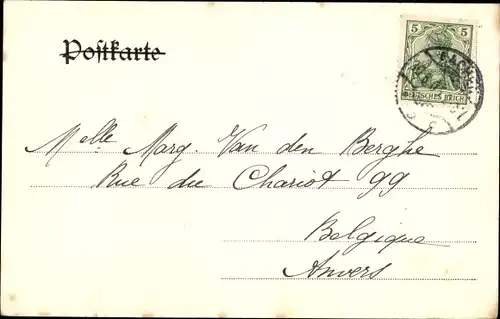 Postkarte
5 5
DEUTSCHES REICH
AACHEN
Melle Marg. Van den Berghe
Rue du Chariot 99
Belgique
Anvers